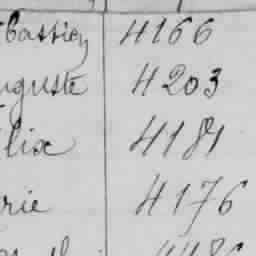 Cassien 4166
uguste 4203
lix 4181
rie 4176